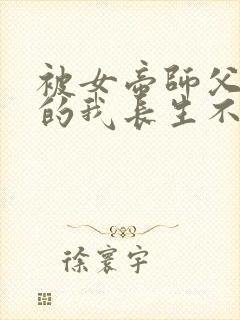 被女帝師父
的我長生不
徐寰宇